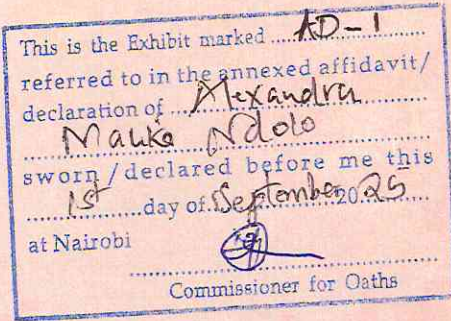 This is the Exhibit marked ....AD-1....
referred to in the annexed affidavit/
declaration of ...Alexandra....
....Mauko Ndolo....
sworn / declared before me this
....1st....day of.September.20.25
at Nairobi
Commissioner for Oaths